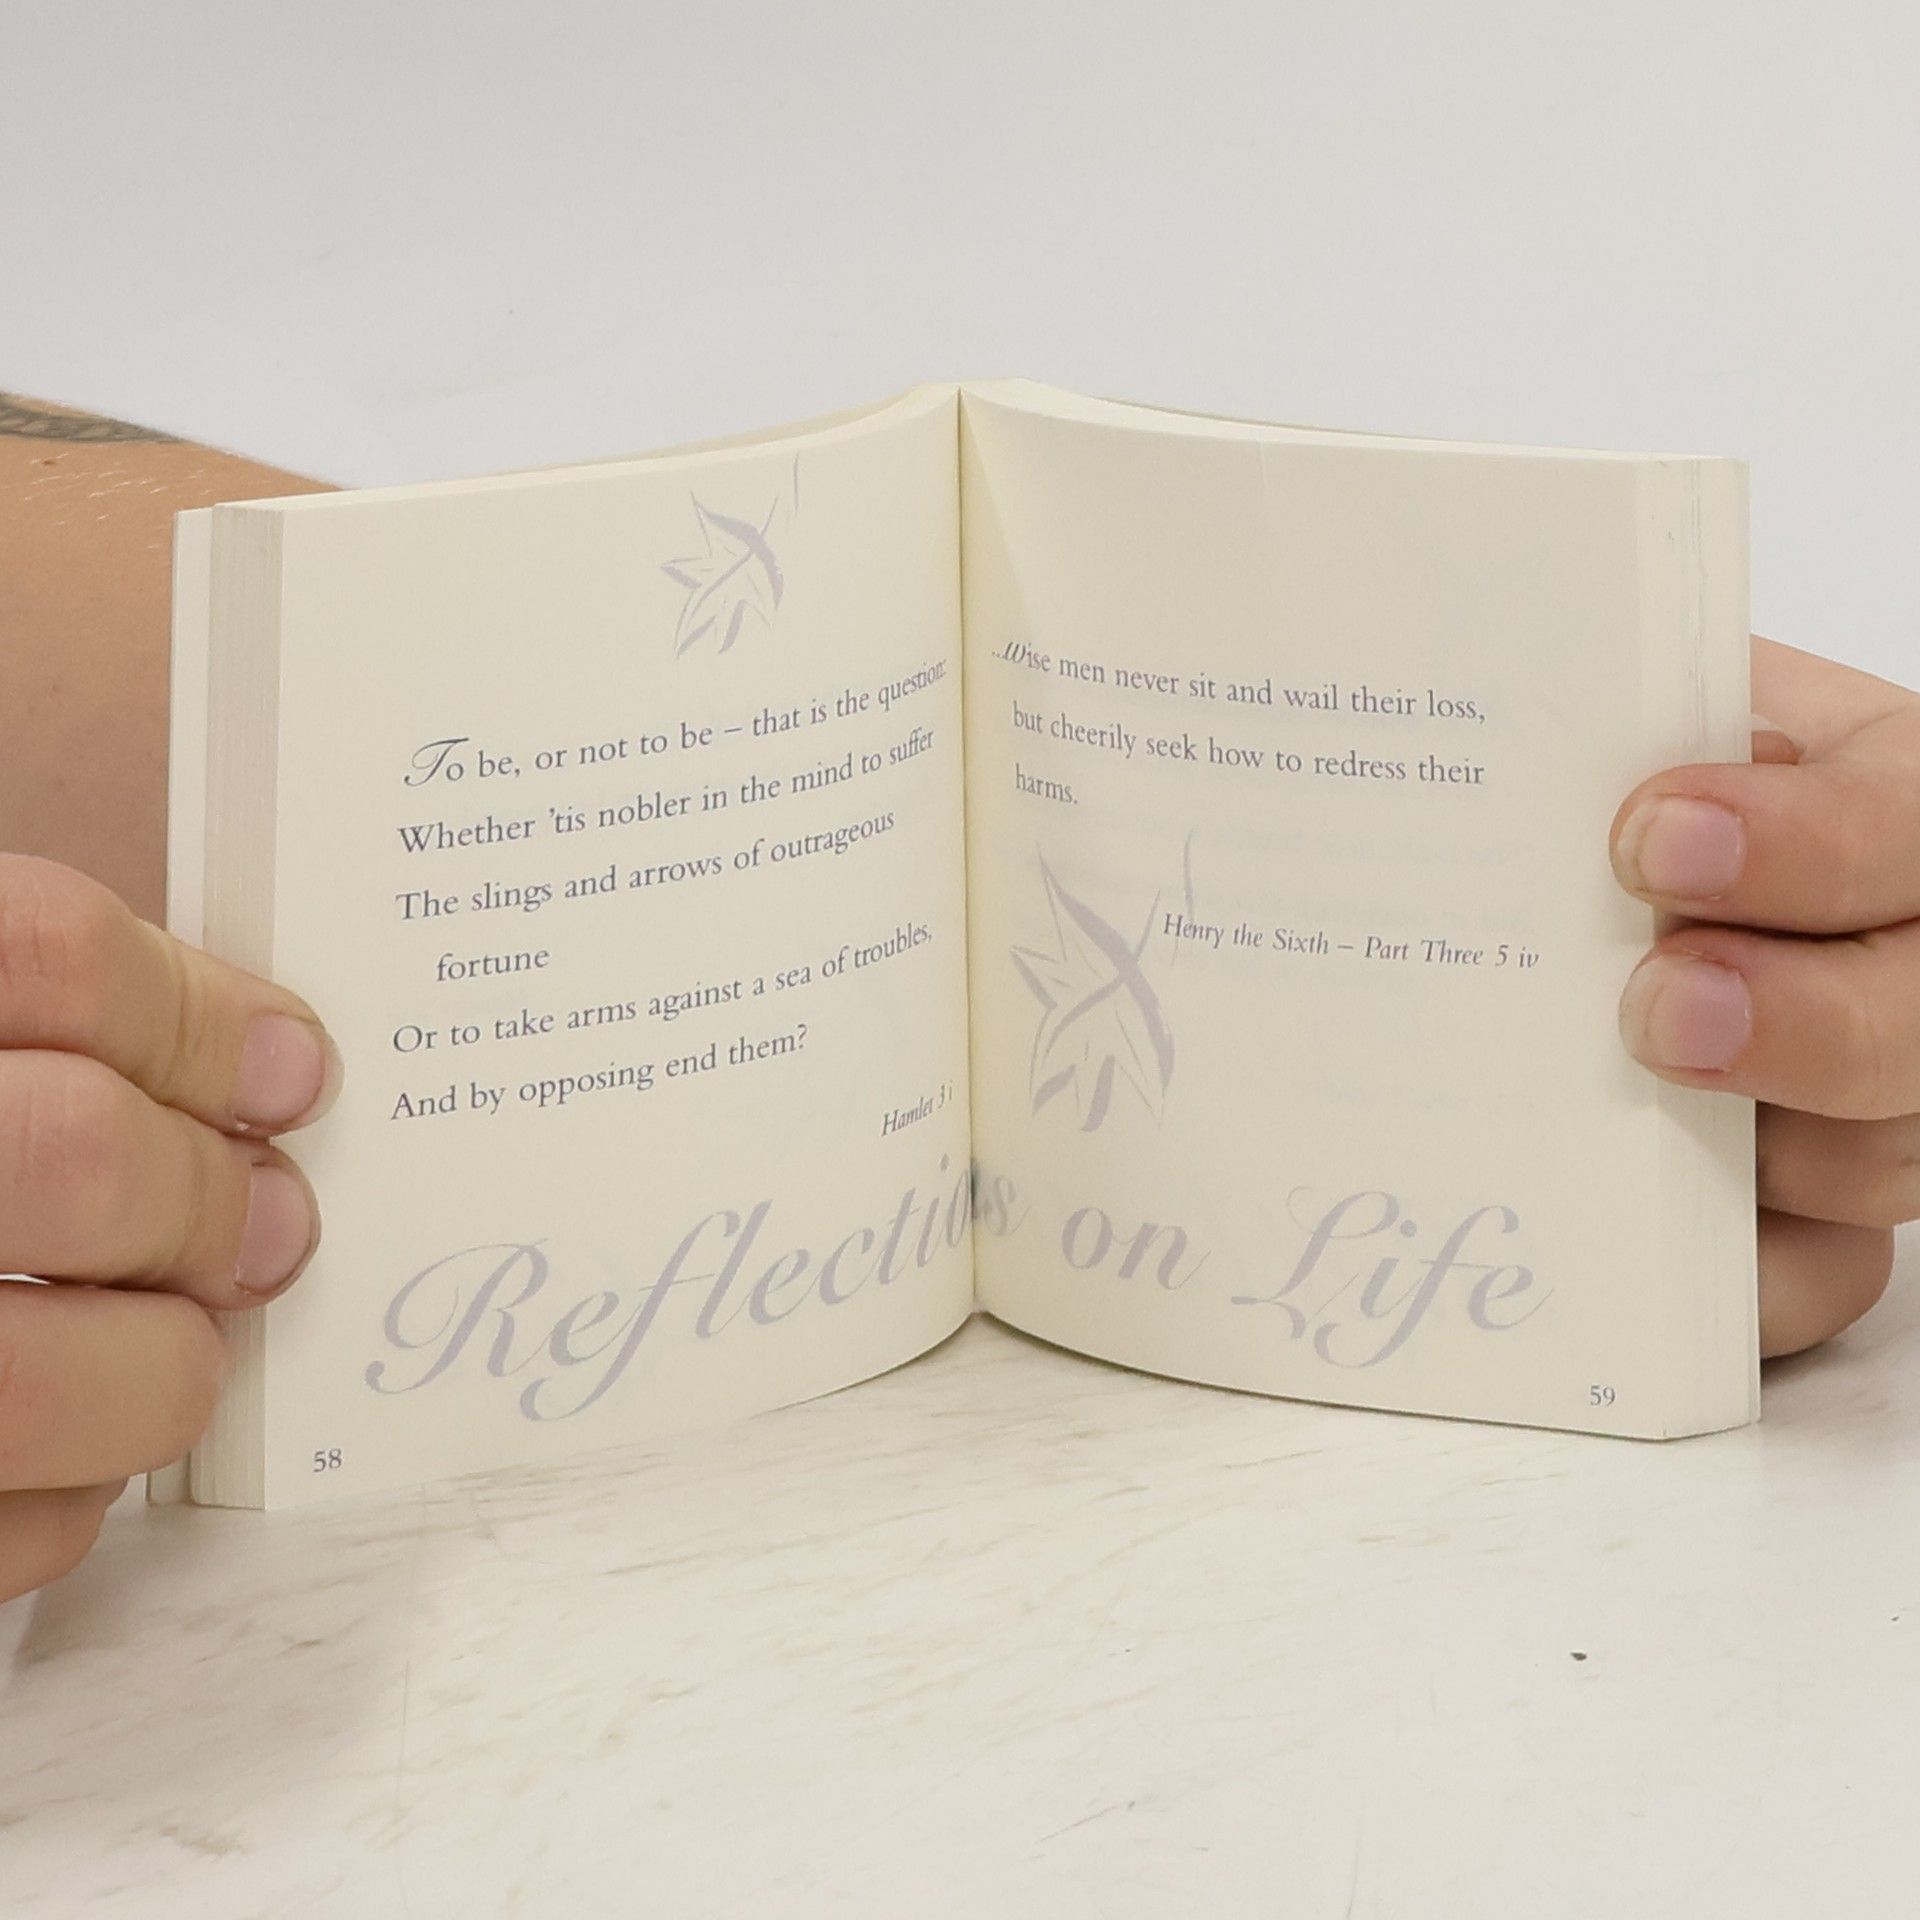 To be, or not to be – that is the question:
Whether 'tis nobler in the mind to suffer
The slings and arrows of outrageous
fortune
Or to take arms against a sea of troubles,
And by opposing end them?
Hamlet 3 i
58
...Wise men never sit and wail their loss,
but cheerily seek how to redress their
harms.
Henry the Sixth – Part Three 5 iv
Reflections on Life
59